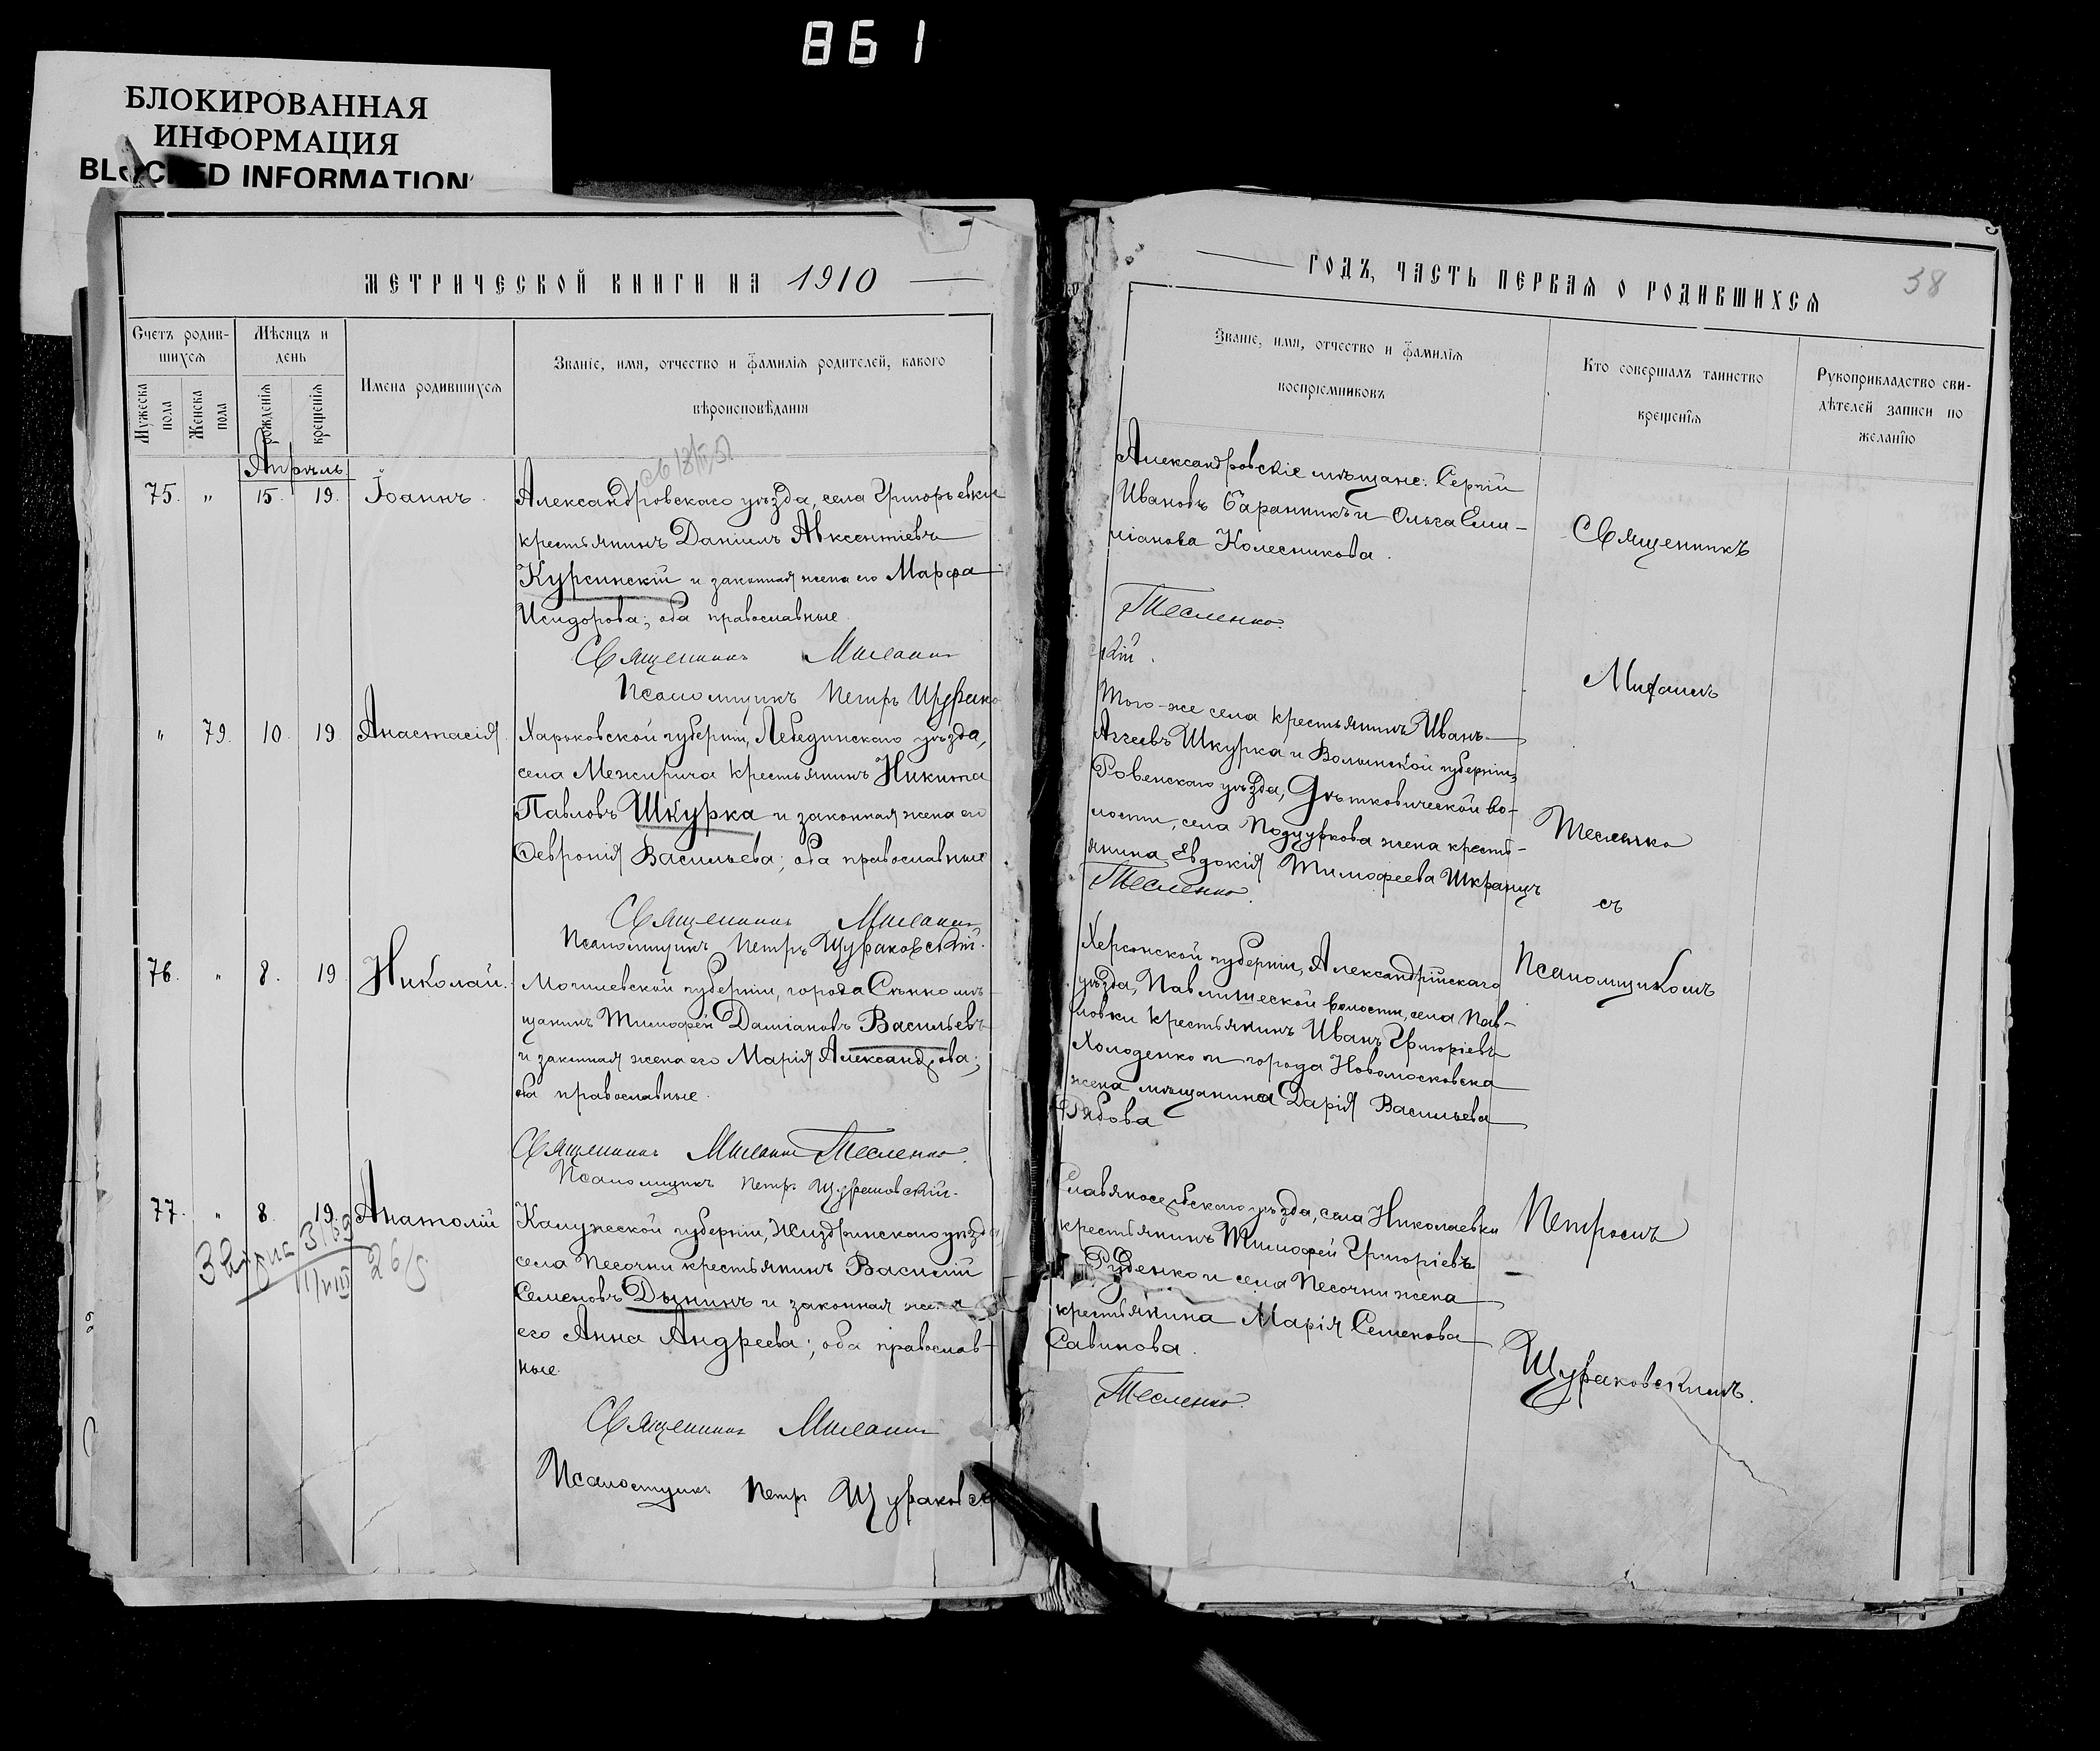 861
БЛОКИРОВАННАЯ
ИНФОРМАЦИЯ
BLOCKED INFORMATION
МЕТРИЧЕСКОЙ КНИГИ НА 1910
Счетъ родив-
шихся
Мѣсяцъ и
день
Имена родившихся
Званіе, имя, отчество и фамилія родителей, какого
вѣроисповѣданія
Мужеска
пола
Женска
пола
рожденія
крещенія
Апрѣль
75. " 15. 19. Іоаннъ. Александровскаго уѣзда, села Григорьевки
крестьянинъ Даніилъ Авксентіевъ
Курсинскій и законная жена его Марфа
Исидорова; оба православные
Священникъ Михаилъ
Псаломщикъ Петръ Щурако
" 79. 10. 19. Анастасія Харьковской губерніи, Лебединскаго уѣзда,
села Межирича крестьянинъ Никита
Павловъ Шкурка и законная жена его
Февронія Васильева; оба православные
Священникъ Михаилъ
Псаломщикъ Петръ Щураковскій.
76. " 8. 19 Николай. Могилевской губерніи, города Сѣнно мѣ-
щанинъ Тимофей Даміановъ Васильевъ
и законная жена его Марія Александрова;
оба православные.
Священникъ Михаилъ Тесленко.
Псаломщикъ Петръ Щураковскій.
77. " 8. 19. Анатолій Калужской губерніи, Жиздринскаго уѣзда
села Песочни крестьянинъ Василій
Семеновъ Дынинъ и законная жена
его Анна Андреева; оба православ-
ные.
Священникъ Михаилъ
Псаломщикъ Петръ Щураковск
ГОДЪ, ЧАСТЬ ПЕРВАЯ О РОДИВШИХСЯ
38
Званіе, имя, отчество и фамилія
воспріемниковъ
Кто совершалъ таинство
крещенія
Рукоприкладство сви-
дѣтелей записи по
желанію
Александровскіе мѣщане: Сергій
Ивановъ Баранникъ и Ольга Еми-
ліанова Колесникова.
Тесленко.
кій.
Того-же села крестьянинъ Иванъ
Аггеевъ Шкурка и Волынской губерніи,
Ровенскаго уѣзда, Дятковической во-
лости, села Подцуркова жена кресть-
янина Евдокія Тимофеева Шкранцъ
Тесленко.
Херсонской губерніи, Александрійскаго
уѣзда, Павлишской волости, села Пав-
ловки крестьянинъ Иванъ Григоріевъ
Холоденко и города Новомосковска
жена мѣщанина Дарія Васильева
Рябова
Славяносербскаго уѣзда, села Николаевки
крестьянинъ Тимофей Григоріевъ
Руденко и села Песочни жена
крестьянина Марія Семенова
Савинова.
Тесленко.
Священникъ
Михаилъ
Тесленко
съ
Псаломщикомъ
Петромъ
Щураковскимъ.